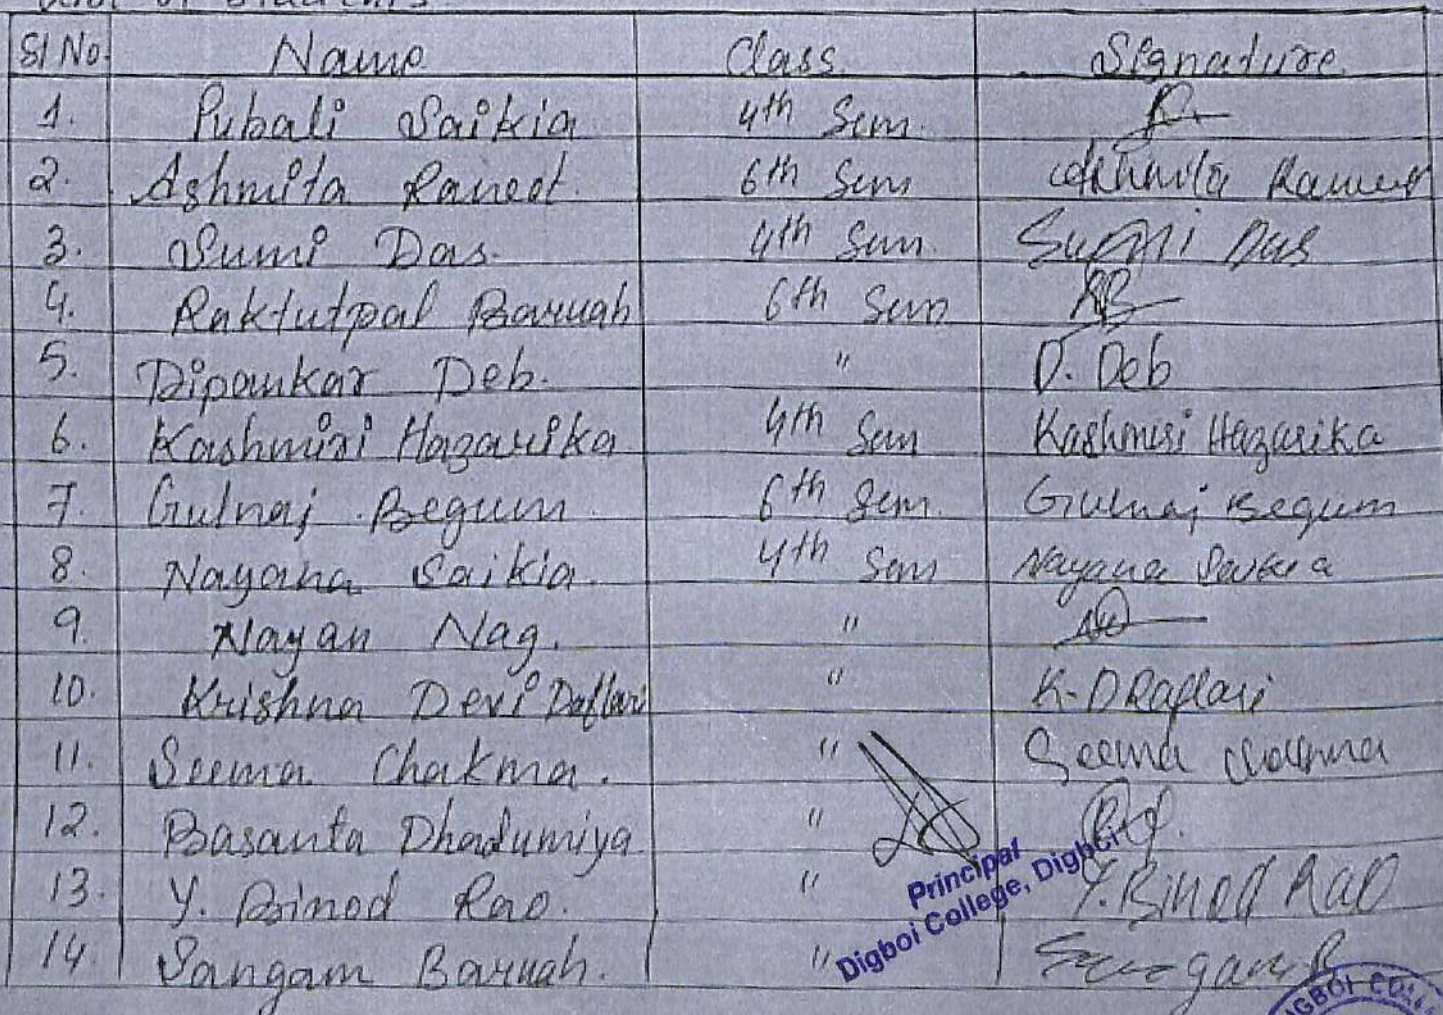 List of Students
Sl No. Name Class. Signature.
1. Pubali Saikia 4th Sem.
2. Ashmita Raneot. 6th Sem Ashmita
3. Sumi Das. 4th Sem. Sumi Das
4. Raktutpal Baruah 6th Sem RB
5. Dipankar Deb. " D. Deb
6. Kashmiri Hazarika 4th Sem Kashmiri Hazarika
7. Gulnaj Begum. 6th Sem. Gulnaj Begum
8. Nayana Saikia. 4th Sem Nayana Saikia
9. Nayan Nag. "
10. Krishna Devi Daflari " K. D Daflari
11. Seema Chakma. " Seema Chakma
12. Basanta Dhadumiya "
13. Y. Binod Rao. " Y. Binod Rao
14. Sangam Baruah. " Sangam B
Principal
Digboi College, Digboi
DIGBOI COLL